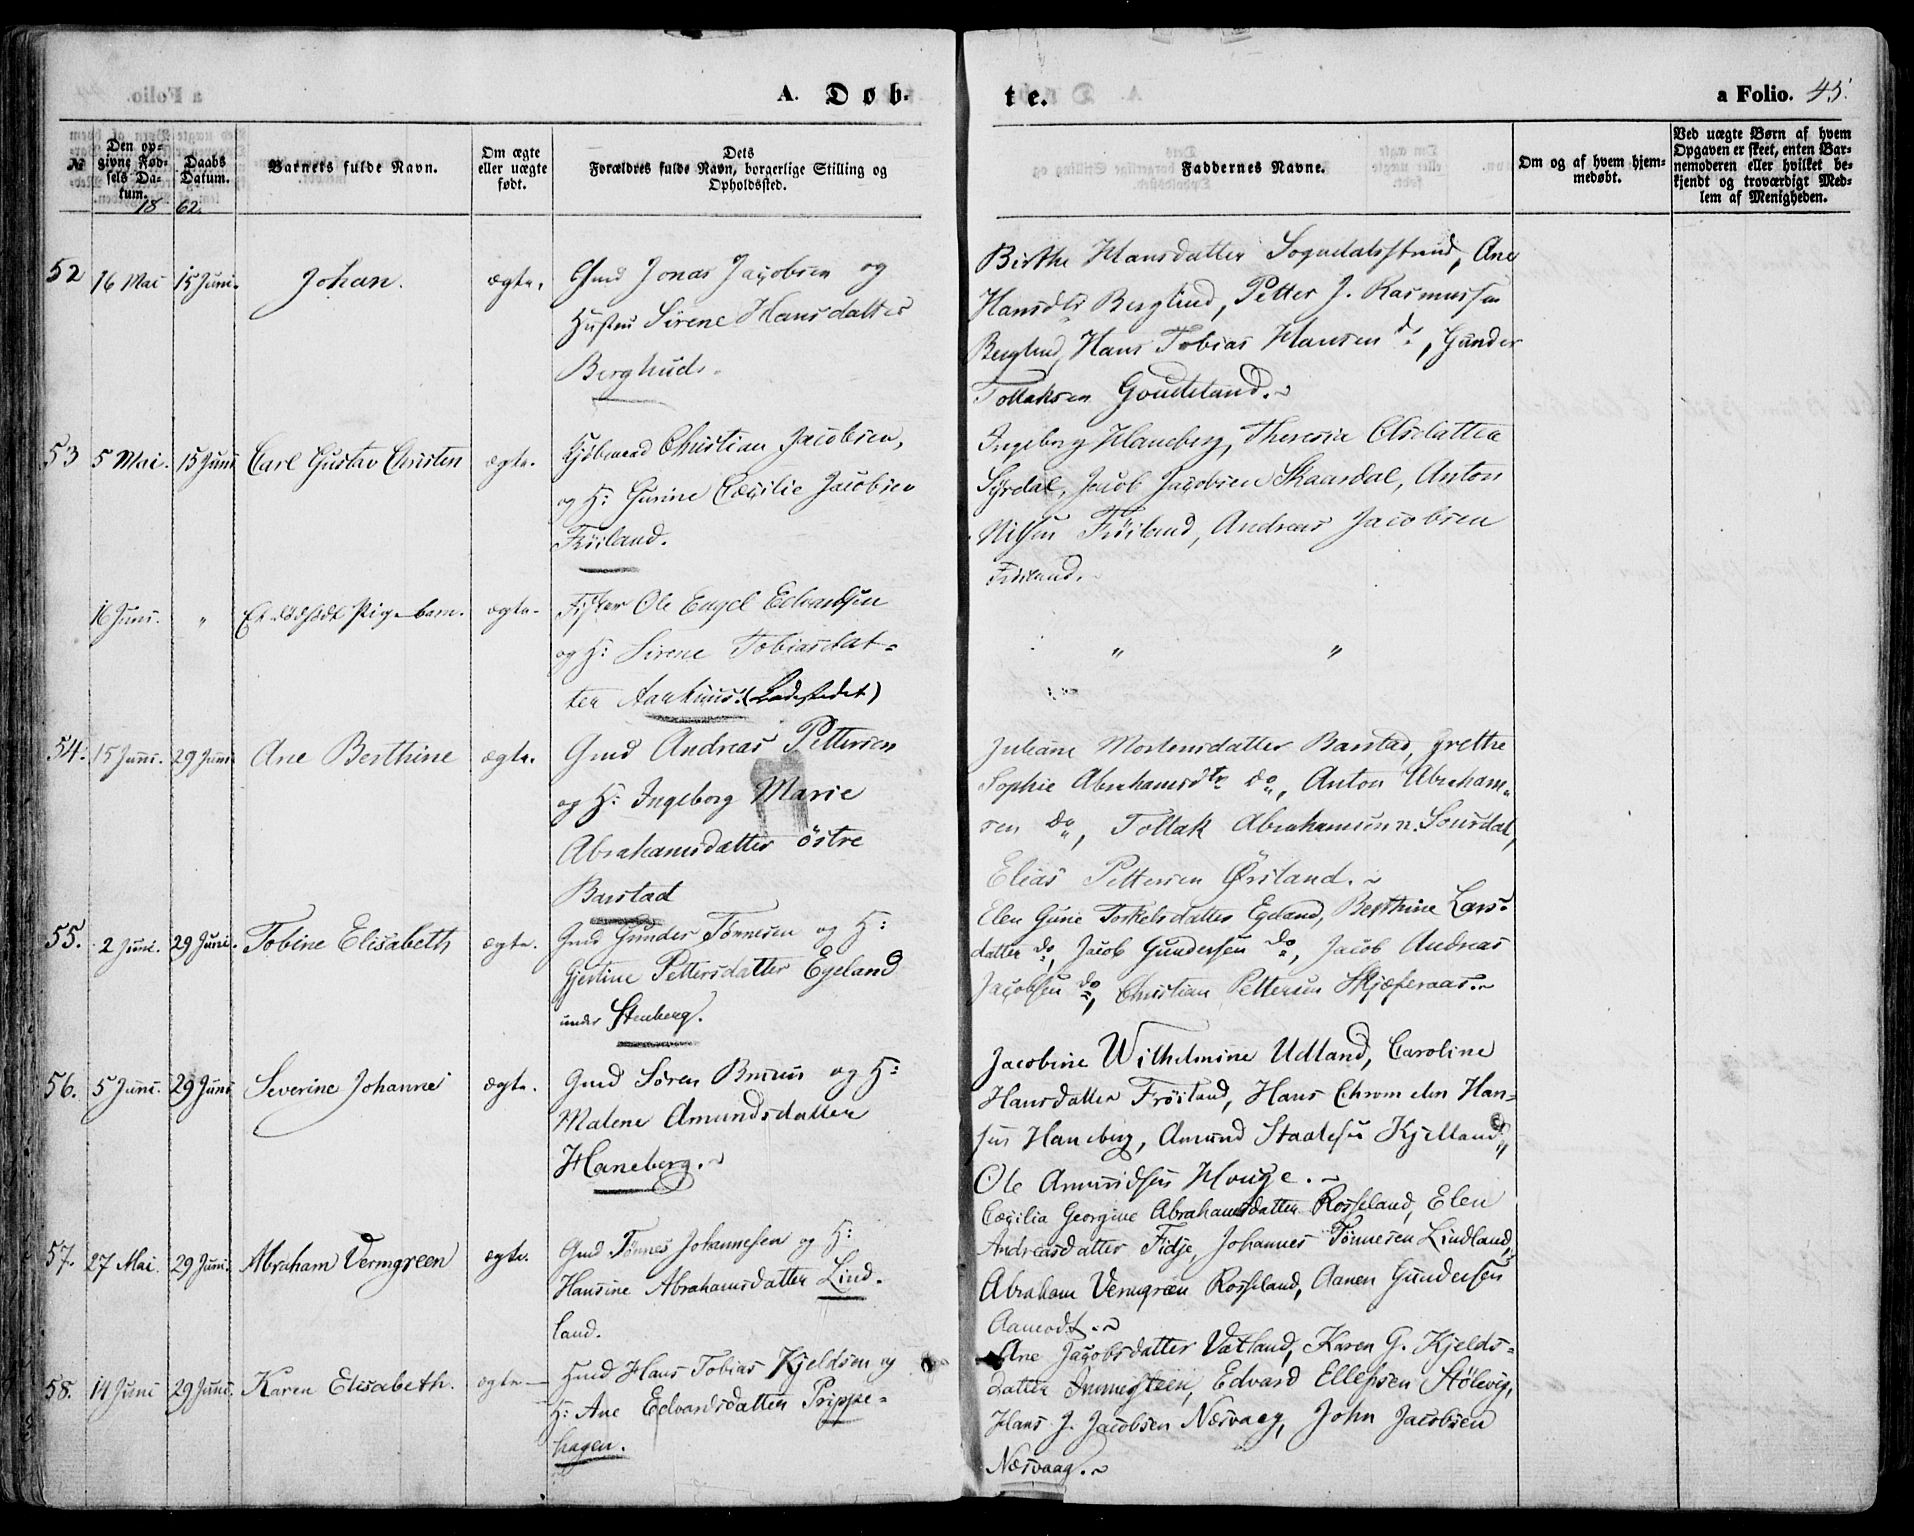 A. Døb-
te.
a Folio. 45.
№
Den op-
givne Fød-
sels Da-
tum.
Daabs
Datum.
Barnets fulde Navn.
Om ægte
eller uægte
født.
Dets
Forældres fulde Navn, borgerlige Stilling og
Opholdssted.
Faddernes Navne.
Om og af hvem hjem-
medøbt.
Ved uægte Børn af hvem
Opgaven er skeet, enten Bar-
nemoderen eller hvilket be-
kjendt og troværdigt Med-
lem af Menigheden.
1862.
52 16 Mai 15 Juni. Johan. ægte.
Gmd Jonas Jacobsen og
Hustru Sirene Hansdatter
Bergliud.
Birthe Hansdatter Sogndalsstrand, Ane
Hansdtr Bergliud, Petter J. Rasmussen
Bergliud, Hans Tobias Hansen do, Gunder
Tollaksen Gouleland.
53 5 Mai. 15 Juni Carl Gustav Christen ægte.
Kjøbmand Christian Jacobsen,
og H: Gurine Cæcilie Jacobsen
Frøiland.
Ingeborg Haneberg, Theresia Olsdatter
Syrdal, Jacob Jacobsen Skaardal, Anton
Nilsen Frøiland, Andreas Jacobsen
Frøiland.
16 Juni. " Et dødfødt Pigebarn. ægte.
Fisker Ole Engel Edvardsen
og H: Sirene Tobiasdat-
ter Aarhuus. (Ladestedet)
" "
54. 15 Juni. 29 Juni Ane Berthine ægte.
Gmd Andreas Pettersen
og H: Ingeborg Marie
Abrahamsdatter östre
Barstad
Juliane Mortensdatter Barstad, Grethe
Sophie Abrahamsdtr do, Anton Abraham-
sen do, Tollak Abrahamsen n. Sousdal,
Elias Pettersen Ørsland.
55. 2 Juni. 29 Juni. Tobine Elisabeth ægte.
Gmd Gunder Tønnesen og H:
Gjertine Pettersdatter Egeland
under Stenberg.
Elen Gurie Torkelsdatter Egeland, Berthine Lars-
datter do, Jacob Gundersen do, Jacob Andreas
Jacobsen do, Christian Pettersen Skjæferaas.
56. 5 Juni. 29 Juni Severine Johanne ægte.
Gmd Søren Bruun og H:
Malene Amundsdatter
Haneberg.
Jacobine Wilhelmine Udland, Caroline
Hansdatter Frøiland, Hans Chrom Han-
sen Haneberg, Amund Staalesen Kjelland,
Ole Amundsen Houge.
57. 27 Mai. 29 Juni. Abraham Vermgreen ægte.
Gmd Tønnes Johannesen og H:
Hansine Abrahamsdatter Lind-
land.
Cæcilia Georgine Abrahamsdatter Rosseland, Elen
Andreasdatter Fidje, Johannes Tønnesen Lindland,
Abraham Vermgreen Rosseland, Aanen Gundersen
Aamodt.
58. 14 Juni 29 Juni. Karen Elisabeth. ægte
Huusmd Hans Tobias Kjeldsen og
H: Ane Edvardsdatter Prippe-
hagen.
Ane Jacobsdatter Vatland, Karen G. Kjelds-
datter Immesteen, Edvard Ellefsen Stølevig,
Hans J. Jacobsen Nesvaag, John Jacobsen
Nesvaag.